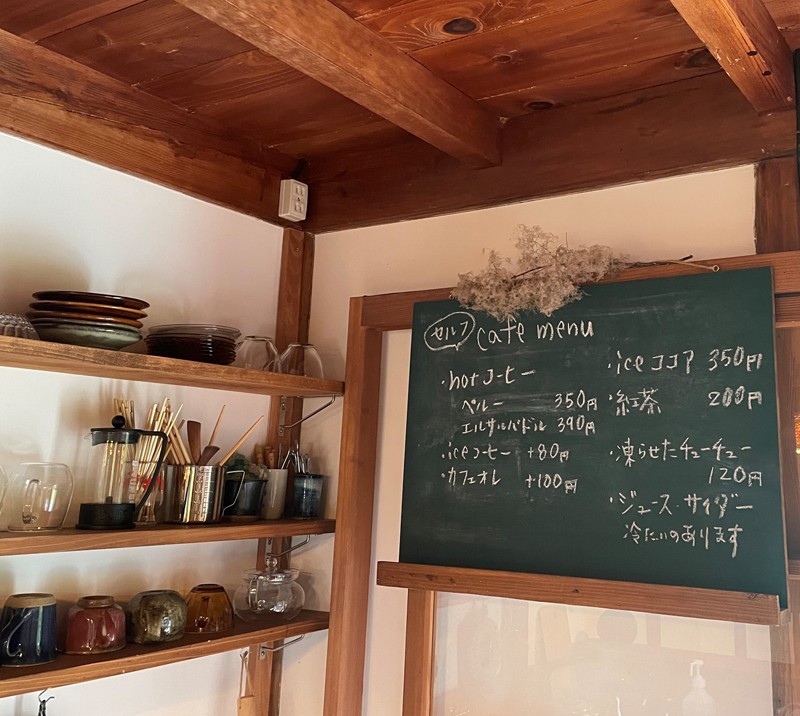 セルフ cafe menu
・hotコーヒー
ペルー 350円
エルサルバドル 390円
・iceコーヒー +80円
・カフェオレ +100円
・iceココア 350円
・紅茶 200円
・凍らせたチューチュー
120円
・ジュース・サイダー
冷たいのあります